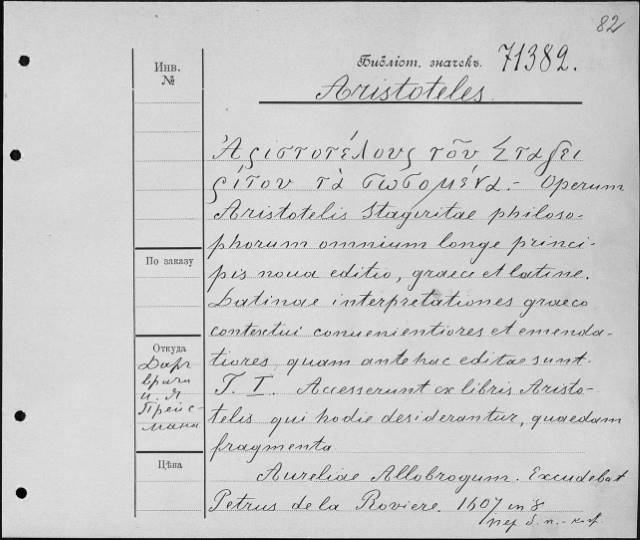 82
Инв.
№
Библіот. значекъ. 71382.
Aristoteles.
Ἀριστοτέλους τοῦ Σταγει
ρίτου τὰ σωσομένα. - Operum
Aristotelis Stagiritae philoso-
phorum omnium longe princi-
pis noua editio, graece et latine.
Latinae interpretationes graeco
contextui conuenientiores et emenda-
tiores, quam antehac editae sunt.
T. I. Accesserunt ex libris Aristo-
telis qui hodie desiderantur, quaedam
fragmenta
Aureliae Allobrogum. Excudebat
Petrus de la Roviere. 1607 in 8
пер б. п. -
По заказу
Откуда
Даръ
врача
И. Я
Прейс-
мана
Цѣна